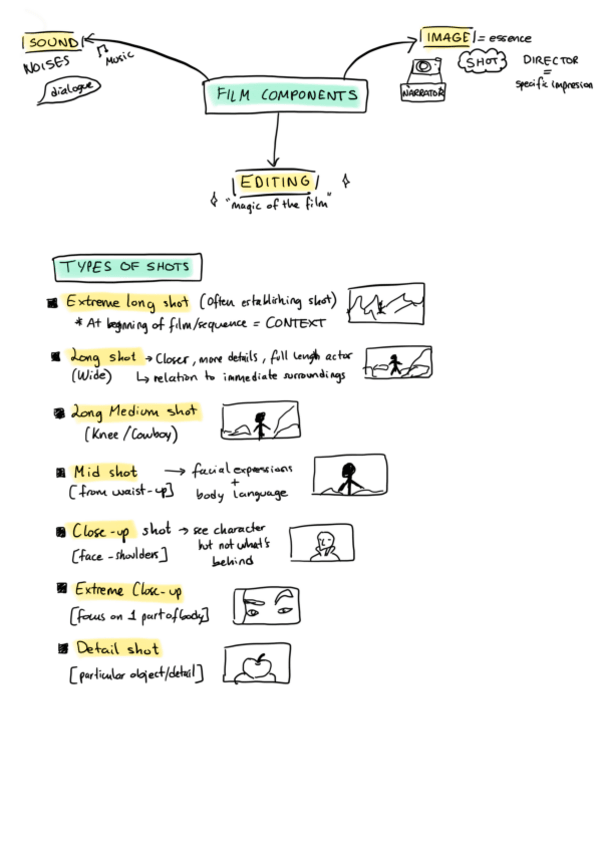 SOUND
NOISES
Music
dialogue
IMAGE = essence
SHOT
DIRECTOR
=
specific impresion
NARRATOR
FILM COMPONENTS
EDITING
"magic of the film"
TYPES OF SHOTS
Extreme long shot (Often establishing shot)
* At beginning of film/sequence = CONTEXT
Long shot → Closer, more details, full length actor
(Wide) ↳ relation to immediate surroundings
Long Medium shot
(Knee/Cowboy)
Mid shot → facial expressions
+
[from waist-up] body language
Close-up shot → see character
but not what's
[face-shoulders] behind
Extreme Close-up
[focus on 1 part of body]
Detail shot
[particular object/detail]